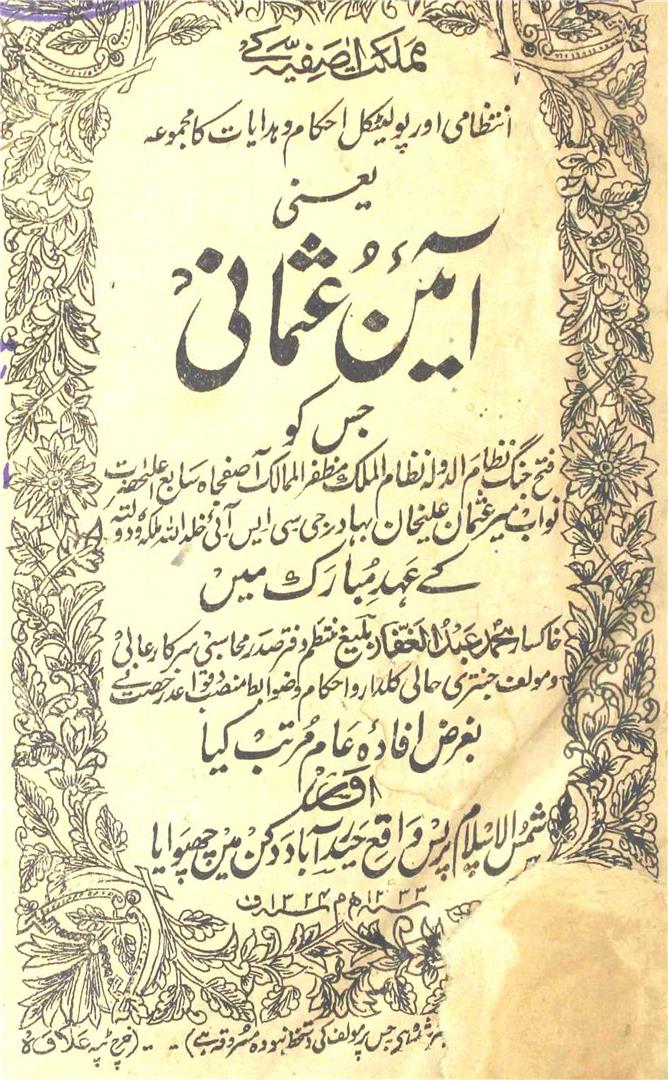 مملکت آصفیہ کے
انتظامی اور پولیٹکل احکام و ہدایات کا مجموعہ
یعنی
آئین عثمانی
جس کو
فتح جنگ نظام الدولہ نظام الملک مظفر الممالک آصفجاہ سابع اعلیٰحضرت
نواب میر عثمان علیخان بہادر جی سی ایس آئی خلد اللہ ملکہ و دولتہ
کے عہد مبارک میں
خاکسار محمد عبد الغفار بلیغ منتظم دفتر صدر محاسبی سرکار عالی
و مولف جنتری حالی کلدار و احکام و ضوابط منصب و قواعد رخصت نے
بغرض افادہ عام مرتب کیا
اور
شمس الاسلام پریس واقع حیدرآباد دکن میں چھپوایا
۱۳۳۳ھ م ۱۳۲۴ف
جس پر مولف کی دستخط نہو وہ مسروقہ ہے) - - (خرچ ٹپہ علاوہ